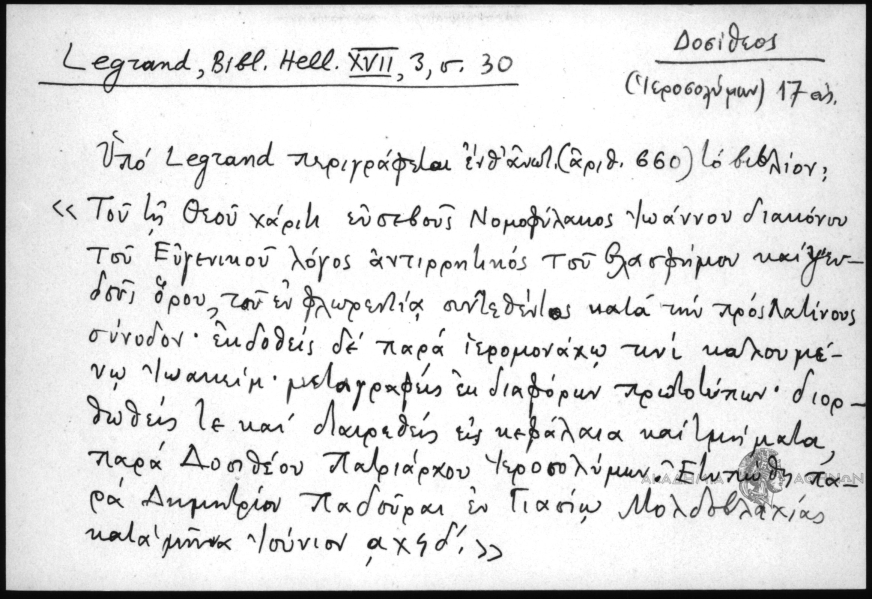 Legrand, Bibl. Hell. XVII, 3, σ. 30
Δοσίθεος
(Ἱεροσολύμων) 17 αἰ.
Ὑπό Legrand περιγράφεται ἐνθ' ἀνωτ. (ἀριθ. 660) τό βιβλίον:
«Τοῦ τῇ Θεοῦ χάριτι εὐσεβοῦς Νομοφύλακος Ἰωάννου διακόνου
τοῦ Εὐγενικοῦ λόγος ἀντιρρητικός τοῦ βλασφήμου καί ψευ-
δοῦς ὅρου, τοῦ ἐν φλωρεντίᾳ συντεθέντος κατά τήν πρός Λατίνους
σύνοδον· ἐκδοθείς δέ παρά ἱερομονάχῳ τινί καλουμέ-
νῳ Ἰωακείμ· μεταγραφείς ἐκ διαφόρων πρωτοτύπων· διορ-
θωθείς τε καί διαιρεθείς εἰς κεφάλαια καί τμήματα,
παρά Δοσιθέου Πατριάρχου Ἱεροσολύμων. Ἐτυπώθη πα-
ρά Δημητρίου Παδούραι ἐν Γιασίῳ Μολδοβλαχίας
κατά μῆνα Ἰούνιον ͵αχϟδ´.»
ΑΚΑΔΗΜΙΑ ΑΘΗΝΩΝ